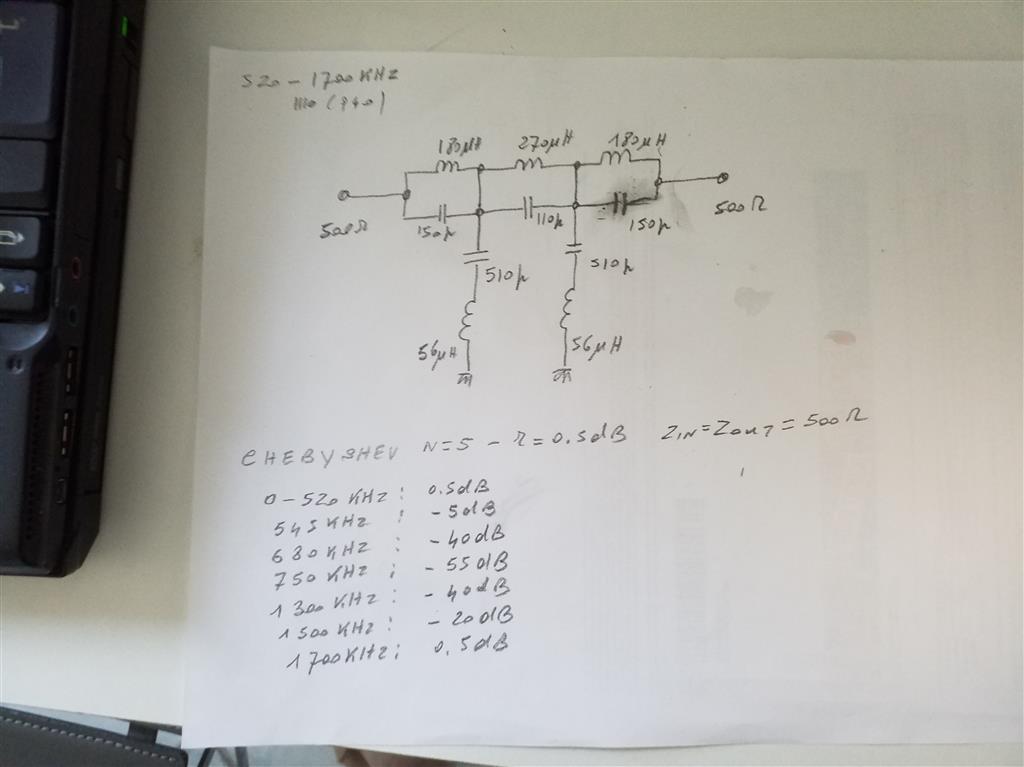 520 - 1700 KHz
1110 (940)
180µH 270µH 180µH
500Ω 150p 110p 150p 500Ω
510p 510p
56µH 56µH
CHEBYSHEV N=5 - r=0.5dB ZIN=ZOUT=500Ω
0-520 KHz: 0.5dB
545 KHz : -5dB
680 KHz : -40dB
750 KHz : -55dB
1300 KHz : -40dB
1500 KHz : -20dB
1700 KHz : 0.5dB